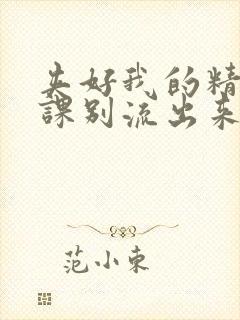 夹好我的精
課别流出来
范小東